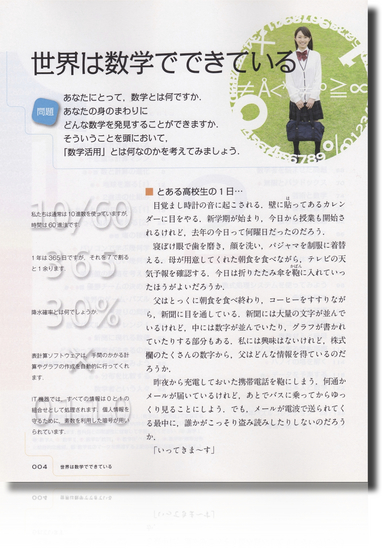 世界は数学でできている
問題
あなたにとって，数学とは何ですか．
あなたの身のまわりに
どんな数学を発見することができますか．
そういうことを頭において，
「数学活用」とは何なのかを考えてみましょう．
■とある高校生の1日…
目覚まし時計の音に起こされる。壁に貼ってあるカレン
ダーに目をやる。新学期が始まり，今日から授業も開始さ
れるけれど，去年の今日って何曜日だったのだろう。
寝ぼけ眼で歯を磨き，顔を洗い，パジャマを制服に着替
える。母が用意してくれた朝食を食べながら，テレビの天
気予報を確認する。今日は折りたたみ傘を鞄に入れていっ
たほうがよいだろうか。
父はとっくに朝食を食べ終わり，コーヒーをすすりなが
ら，新聞に目を通している。新聞には大量の文字が並んで
いるけれど，中には数字が並んでいたり，グラフが書かれ
ていたりする部分もある。私には興味はないけれど，株式
欄のたくさんの数字から，父はどんな情報を得ているのだ
ろうか。
昨夜から充電しておいた携帯電話を鞄にしまう。何通か
メールが届いているけれど，あとでバスに乗ってからゆっ
くり見ることにしよう。でも，メールが電波で送られてく
る最中に，誰かがこっそり盗み読みしたりしないのだろう
か。
「いってきま～す」
10/60
私たちは通常は10進数を使っていますが，
時間は60進法です．
365
1年は365日ですが，それを7で割る
と1余ります．
30%
降水確率とは何でしょうか．
表計算ソフトウェアは，手間のかかる計
算やグラフの作成を自動的に行ってくれ
ます．
IT機器では，すべての情報は0と1の
組合せとして処理されます．個人情報を
守るために，素数を利用した暗号が用い
られています．
004 世界は数学でできている